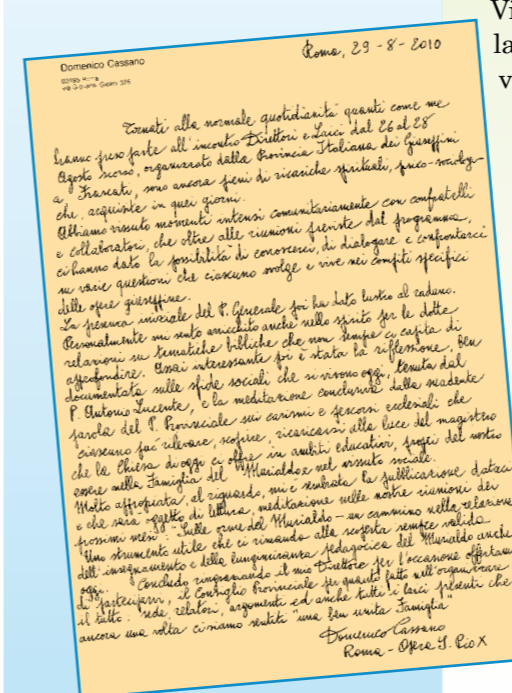 Vi
la
v
Domenico Cassano
Roma
Roma, 29-8-2010
Tornati alla normale quotidianità quanti come me
hanno preso parte all'incontro Direttori e Laici dal 26 al 28
Agosto scorso, organizzato dalla Provincia Italiana dei Giuseppini
a Frascati, sono ancora pieni di ricariche spirituali, psico-sociologi-
che, acquisite in quei giorni.
Abbiamo vissuto momenti intensi comunitariamente con confratelli
e collaboratori, che oltre alle riunioni previste dal programma,
ci hanno dato la possibilità di conoscerci, di dialogare e confrontarci
su varie questioni che ciascuno svolge e vive nei compiti specifici
delle opere giuseppine.
La presenza iniziale del P. Generale poi ha dato lustro al raduno.
Personalmente mi sento arricchito anche nello spirito per le dotte
relazioni su tematiche bibliche che non sempre ci capita di
approfondire. Assai interessante poi è stata la riflessione, ben
documentata sulle sfide sociali che si vivono oggi, tenuta dal
P. Antonio Lucente, e la meditazione conclusiva dalla suadente
parola del P. Provinciale sui carismi e percorsi ecclesiali che
ciascuno può rilevare, scoprire, ricaricarsi alla luce del magistero
che la Chiesa di oggi ci offre in ambiti educativi, propri del nostro
essere nella Famiglia del Murialdo e nel vissuto sociale.
Molto appropriata, al riguardo, mi è sembrata la pubblicazione dataci
e che sarà oggetto di lettura, meditazione nelle nostre riunioni dei
prossimi mesi: "Sulle orme del Murialdo - un cammino nella relazione
Uno strumento utile che ci rimanda alla scoperta sempre valida
dell'insegnamento e della lungimiranza pedagogica del Murialdo anche
oggi. Concludo ringraziando il mio Direttore per l'occasione offertami
di parteciparvi, il Consiglio Provinciale per quanto fatto nell'organizzare
il tutto: sede, relatori, argomenti ed anche tutti i laici presenti che
ancora una volta ci siamo sentiti una ben unita Famiglia
Domenico Cassano
Roma - Opera S. Pio X